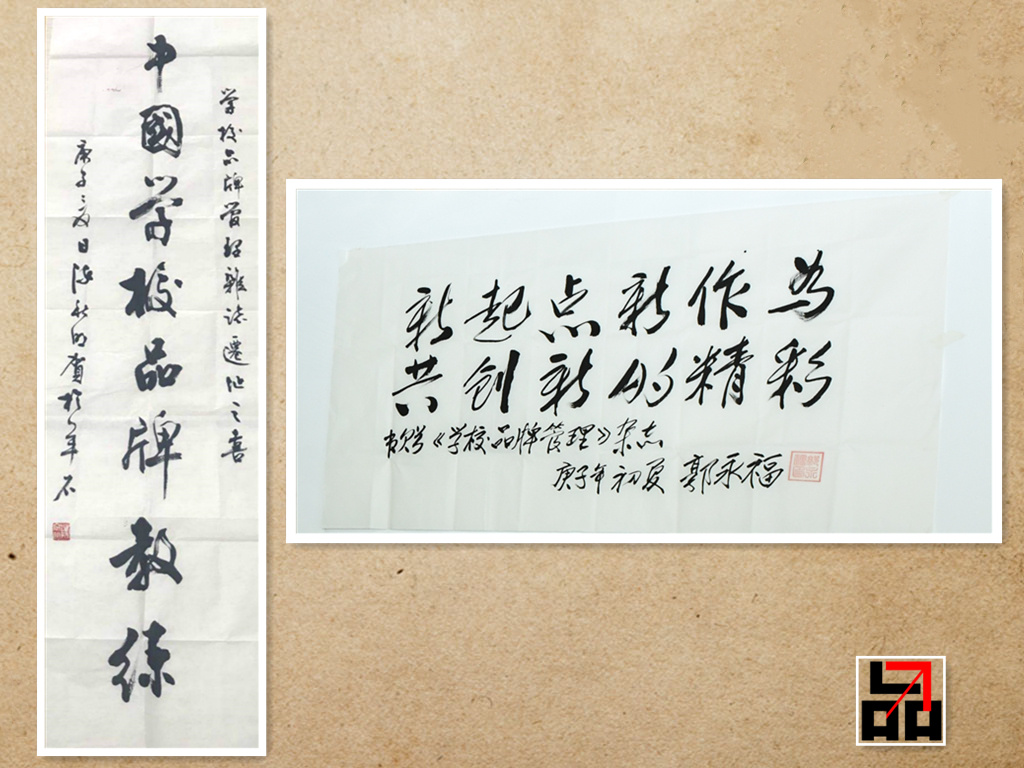 学校品牌管理雜誌遷址之喜
中國学校品牌教練
庚子夏日
新起点新作为
共创新的精彩
《学校品牌管理》杂志
庚子年初夏 郭永福